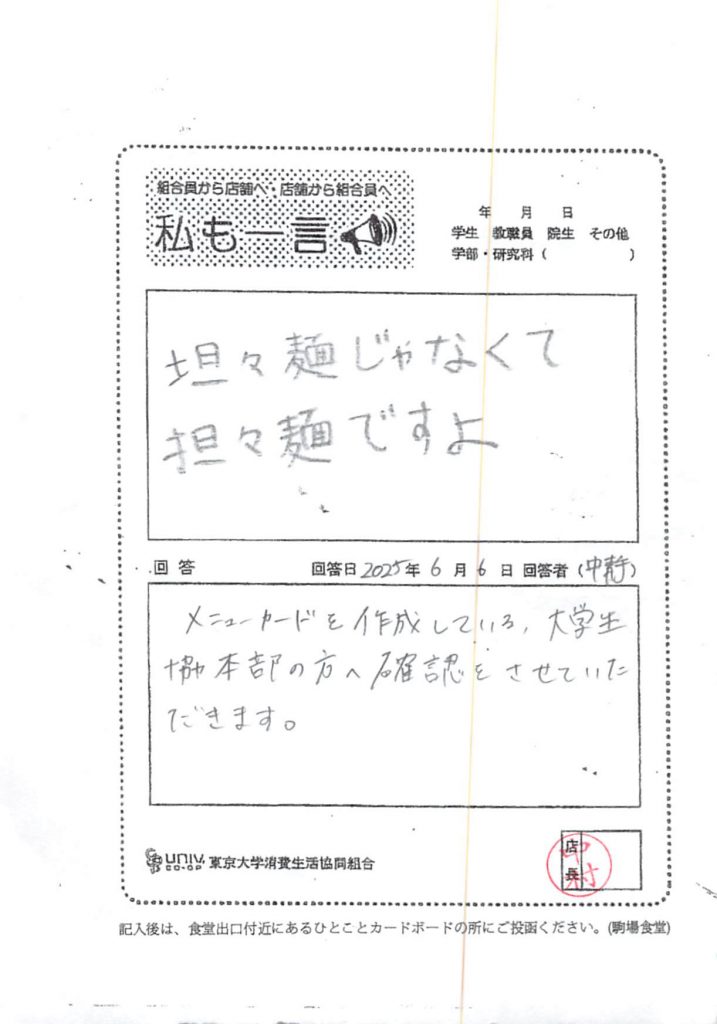 組合員から店舗へ・店舗から組合員へ
私も一言
年 月 日
学生 教職員 院生 その他
学部・研究科( )
坦々麺じゃなくて
担々麺ですよ
回答 回答日2025年6月6日 回答者(中静)
メニューカードを作成している、大学生
協本部の方へ確認をさせていた
だきます。
univ. CO-OP 東京大学消費生活協同組合
店長 中村
記入後は、食堂出口付近にあるひとことカードボードの所にご投函ください。(駒場食堂)